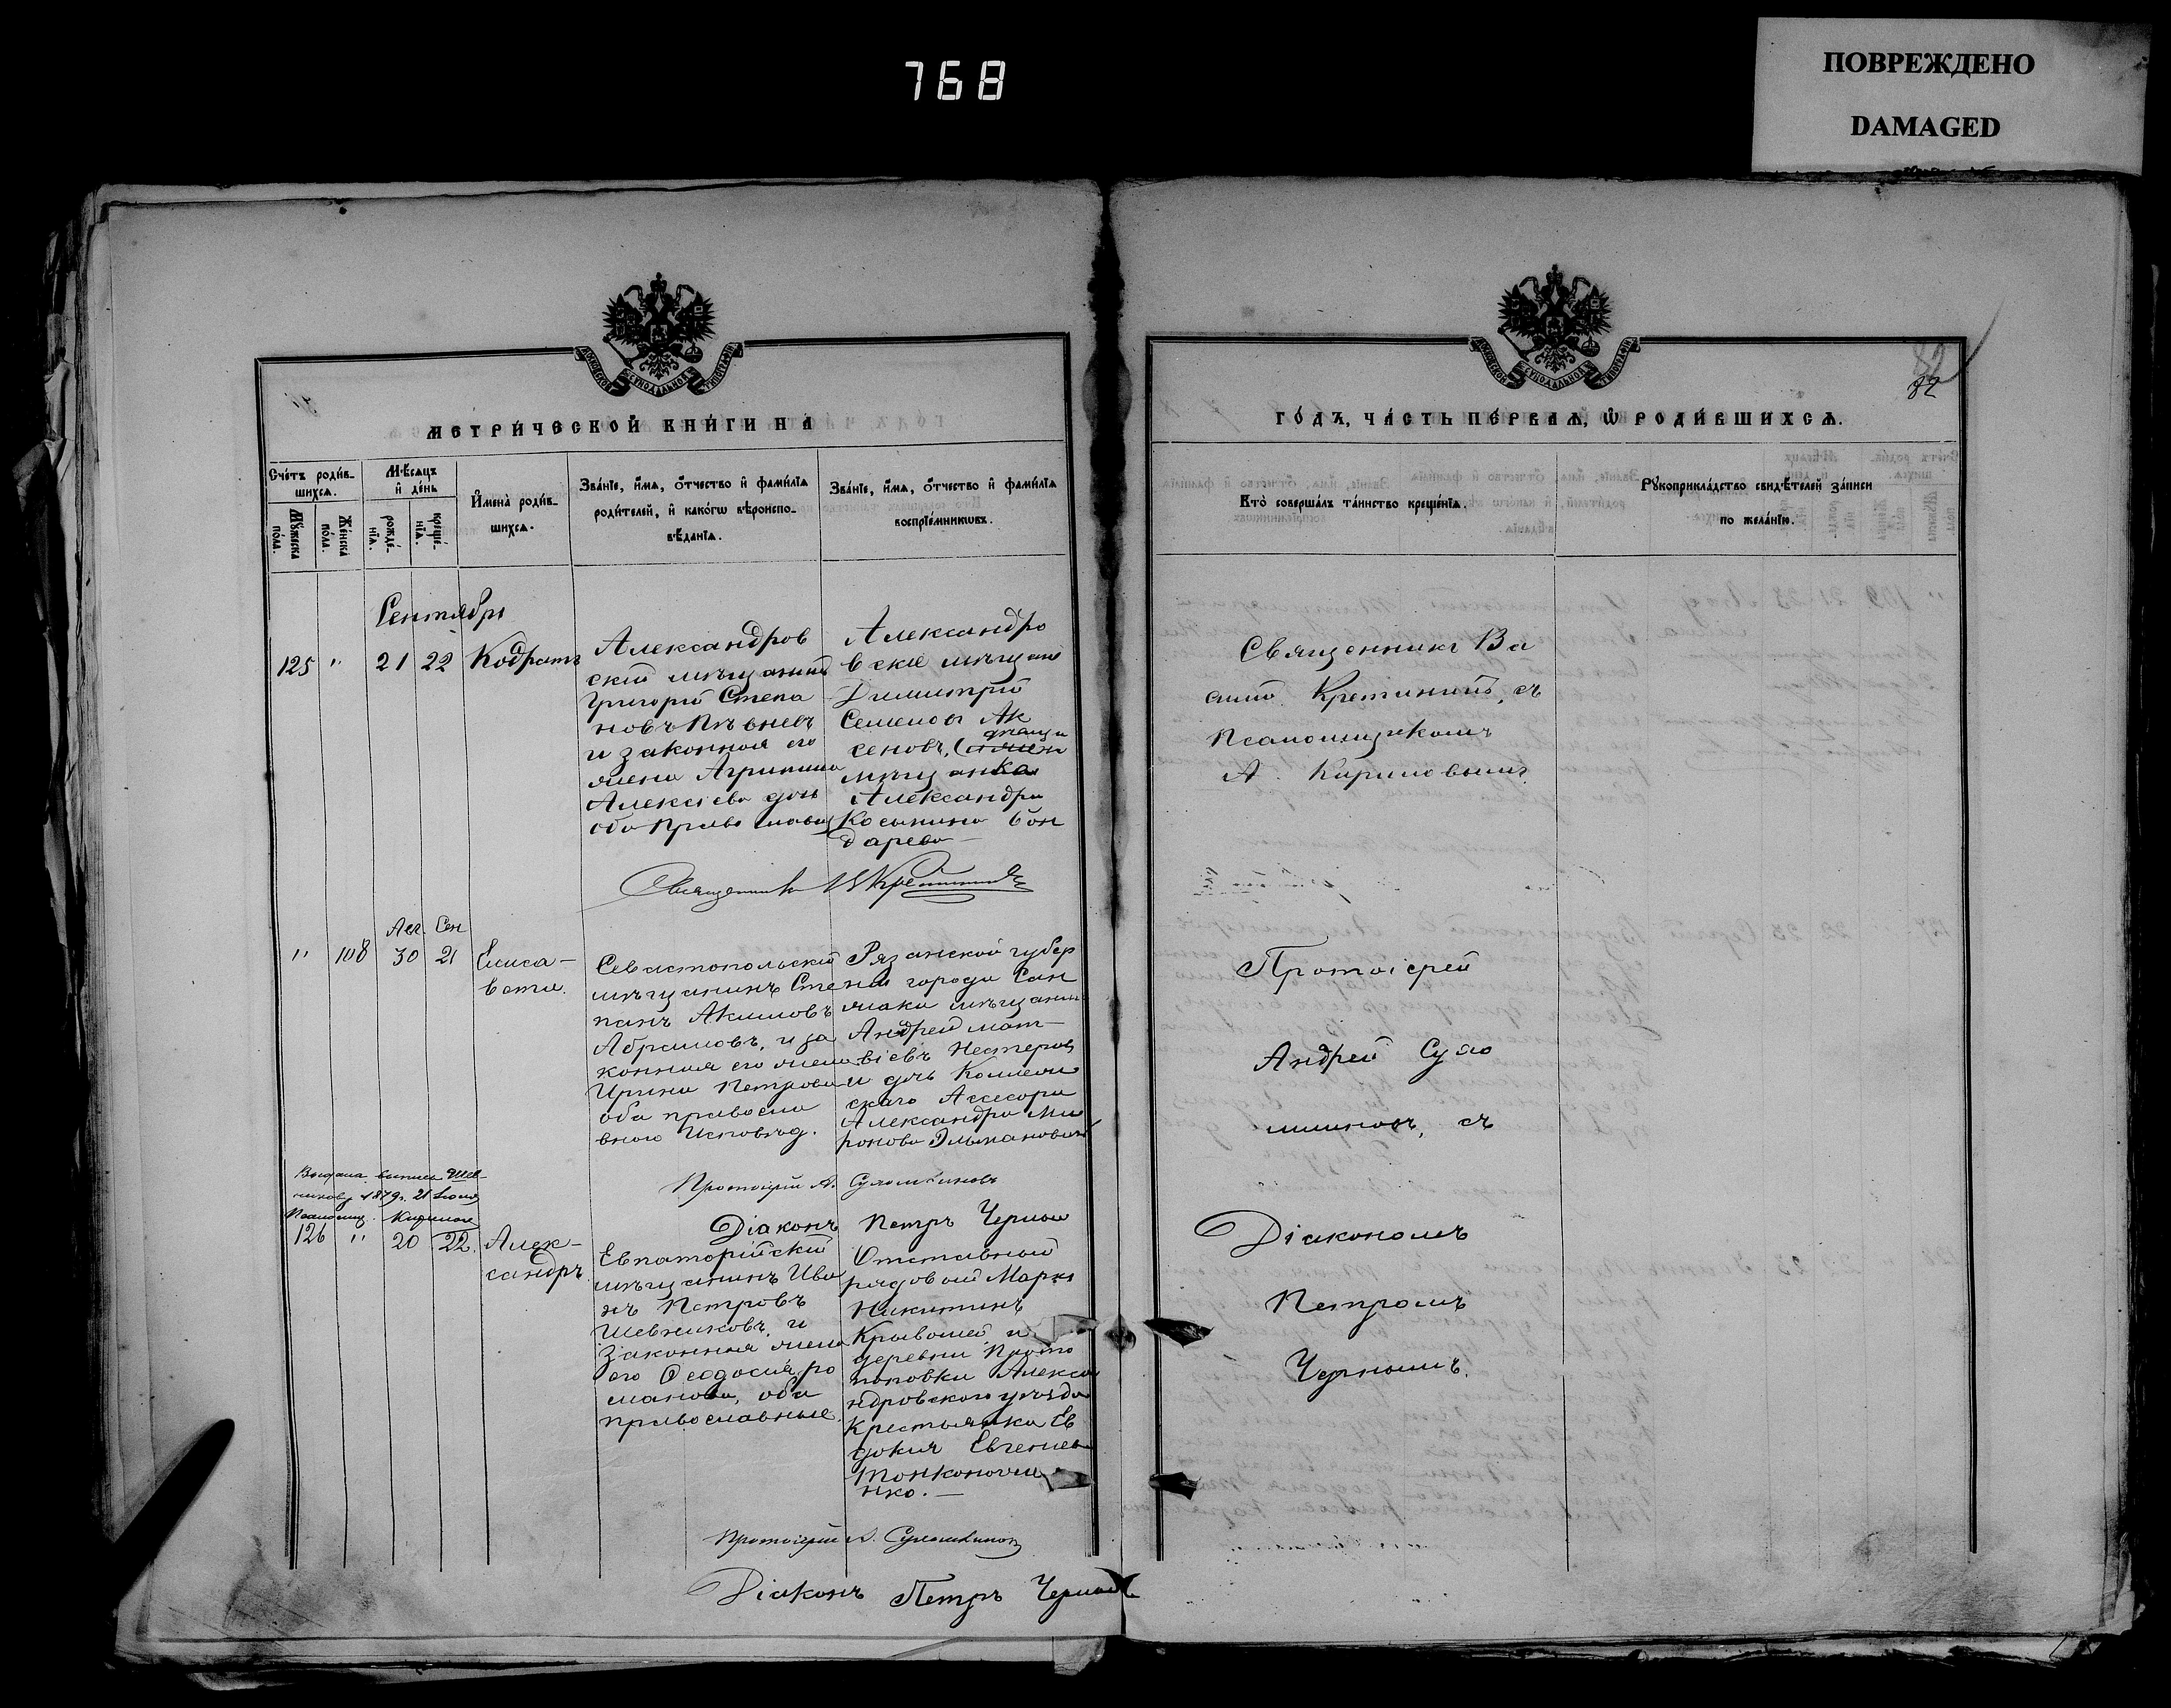 768
ПОВРЕЖДЕНО
DAMAGED
МОСКОВСКОЙ СѴНОДАЛЬНОЙ ТИПОГРАФІИ
МЕТРИ́ЧЕСКОЙ КНИ́ГИ НА
Сче́тъ роди́в-
шихсѧ.
Мꙋжеска
по́ла.
Же́нска
по́ла.
Мѣ́сѧцъ
и҆ де́нь
рожде́-
нїѧ.
креще́-
нїѧ.
И҆мена̀ роди́в-
шихсѧ.
Зва́нїе, и҆́мѧ, ѻ҆́тчество и҆ фами́лїѧ
роди́телей, и҆ како́гѡ вѣроиспо-
вѣ́данїѧ.
Зва́нїе, и҆́мѧ, ѻ҆́тчество и҆ фами́лїѧ
воспрїе́мникѡвъ.
Сентябрь
125 " 21 22 Кодратъ
Александров
скій мѣщанинъ
Григорій Степа
новъ Пѣвневъ
и законная его
жена Агрипина
Алексіева дочь
оба православ
Александро
вскіе мѣщане
Димитрій
Семеновъ Ак
сеновъ,
мѣщанка
Александра
Косьмина Бон
дарева
Священникъ В Кретининъ
Авг. Сен
" 108 30 21 Елиса-
вета.
Севастопольскій
мѣщанинъ Сте
панъ Акимовъ
Абрамовъ, и за
конная его жена
Ирина Петрова
оба правосла
вного исповѣд.
Рязанской губер
ніи города Сап
жака мѣщанин
Андрей Мат-
віевъ Нестеров
и дочь Коллеж
скаго Ассесора
Александра Ми
ронова Эльманович
Протоіерей А. Сулошниковъ
Діаконъ Петръ Черный
Выдана выпись Шев-
никову 1879 г. 21 Іюля
Псаломщ.
126 " 20 22. Алек-
сандръ
Евпаторійскій
мѣщанинъ Ива
нъ Петровъ
Шевниковъ, и
законная жена
его Ѳеодосія Ро
манова, оба
православные.
Отставный
рядовой Марко
Никитинъ
Крывошей, и
деревни Прото
поповки Алекса
ндровскаго уѣзда
Крестьянка Ев
докія Евгениева
Тонконоже
нко.—
Діаконъ Петръ Черный
82
82
МОСКОВСКОЙ СѴНОДАЛЬНОЙ ТИПОГРАФІИ
ГО́ДЪ, ЧА́СТЬ ПЕ́РВАѦ, Ѡ҆ РОДИ́ВШИХСѦ.
Кто̀ соверша́лъ та́инство креще́нїѧ.
Рꙋкоприкла́дство свидѣ́телей за́писи
по жела́нїю.
Священникъ Ва
силій Кретининъ, съ
Псаломщикомъ
А. Кириловымъ.
Протоіерей
Андрей Суло
шниковъ, съ
Діакономъ
Петромъ
Чернымъ.